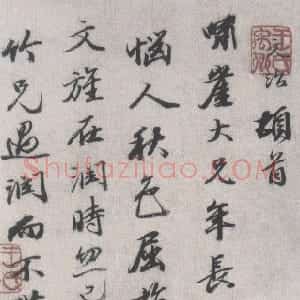 治頓首
啸崖大兄年長
惱人秋色屈指
文旌在潤時忽已
竹兄過潤而不
Shufaziliao.com